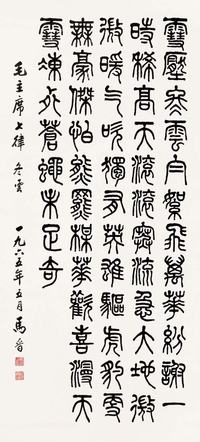 雪壓冬雲白絮飛萬華紛謝一
時稀高天滾滾寒流急大地微
微暖气吹獨有英雄驅虎豹更
無豪傑怕熊羆梅華歡喜漫天
雪凍死蒼蠅未足奇
毛主席七律 冬雲 一九六五年五月馬晉